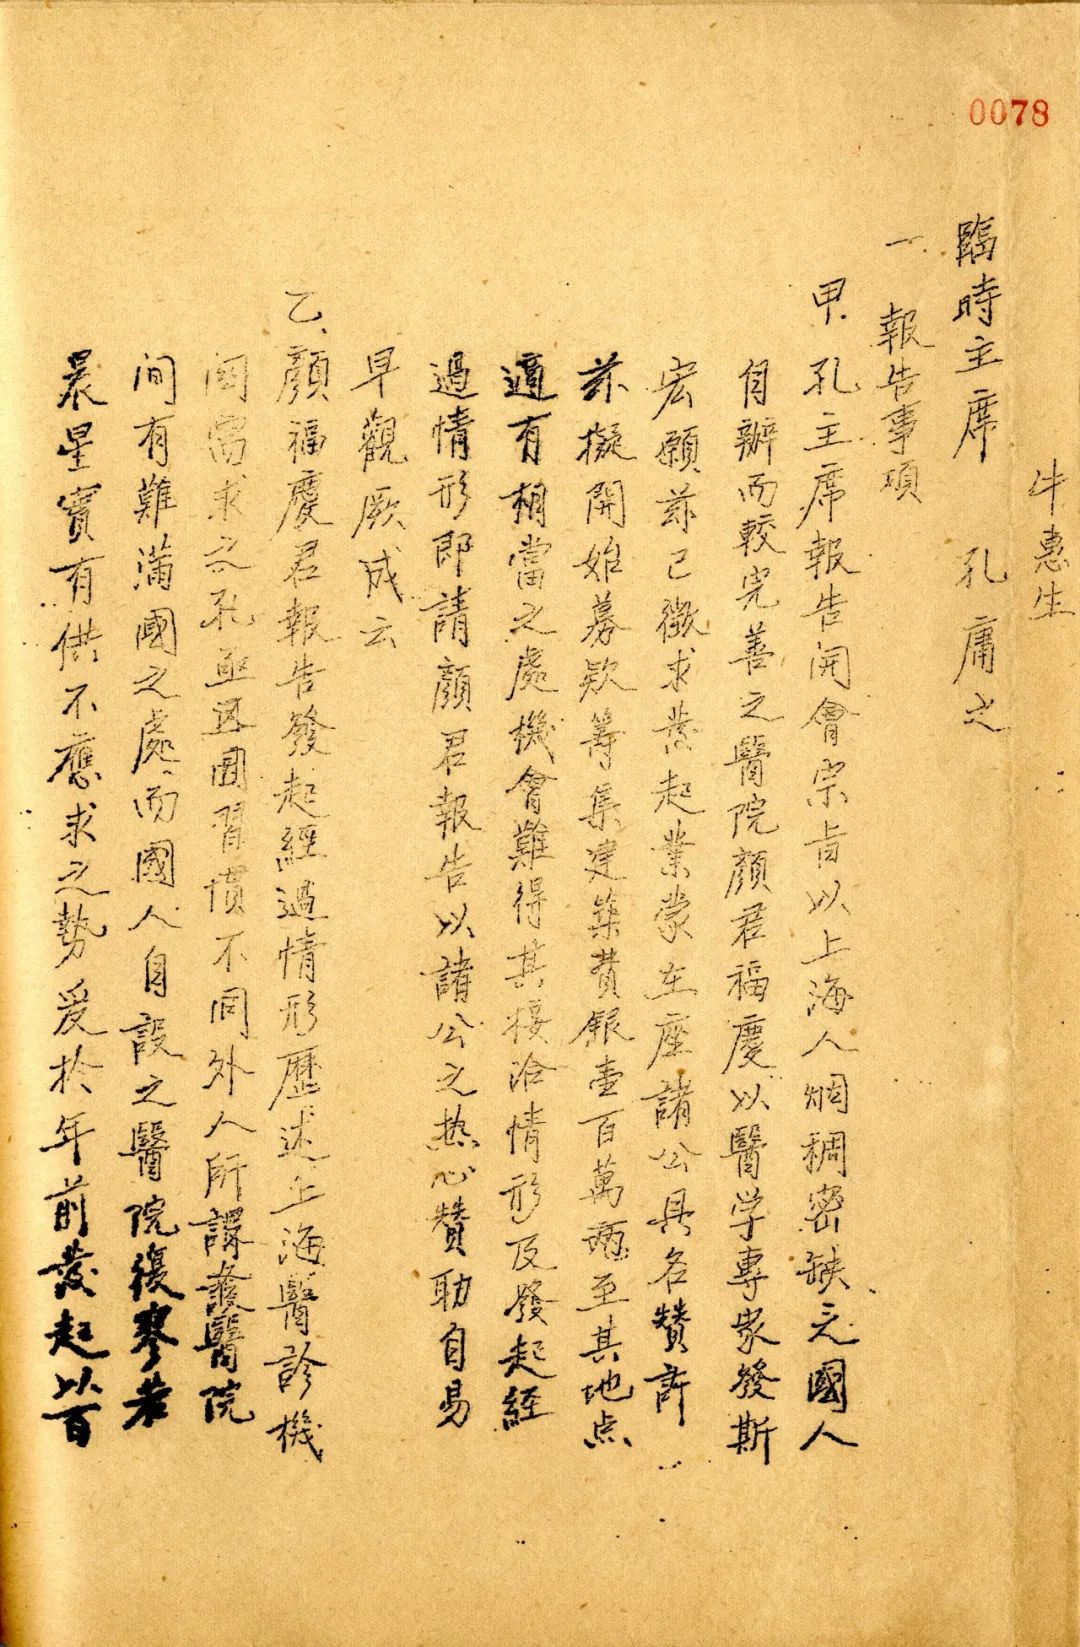 0078
牛惠生
臨時主席 孔庸之
一、報告事項
甲、孔主席報告開會宗旨以上海人烟稠密缺乏國人
自辦而較完善之醫院顏君福慶以醫学專家發斯
宏願茲已徵求發起業蒙在座諸公具名贊許
茲擬開始募欵籌集建築費銀壹百萬兩至其地点
適有相當之處機會難得其接洽情形及發起經
過情形即請顏君報告以諸公之热心贊助自易
早觀厥成云
乙、顏福慶君報告發起經過情形歷述上海醫診機
関需求之孔亟因習慣不同外人所謀醫院
间有難滿國之處、而國人自設之醫院復寥若
晨星實有供不應求之勢爰於年前發起以百